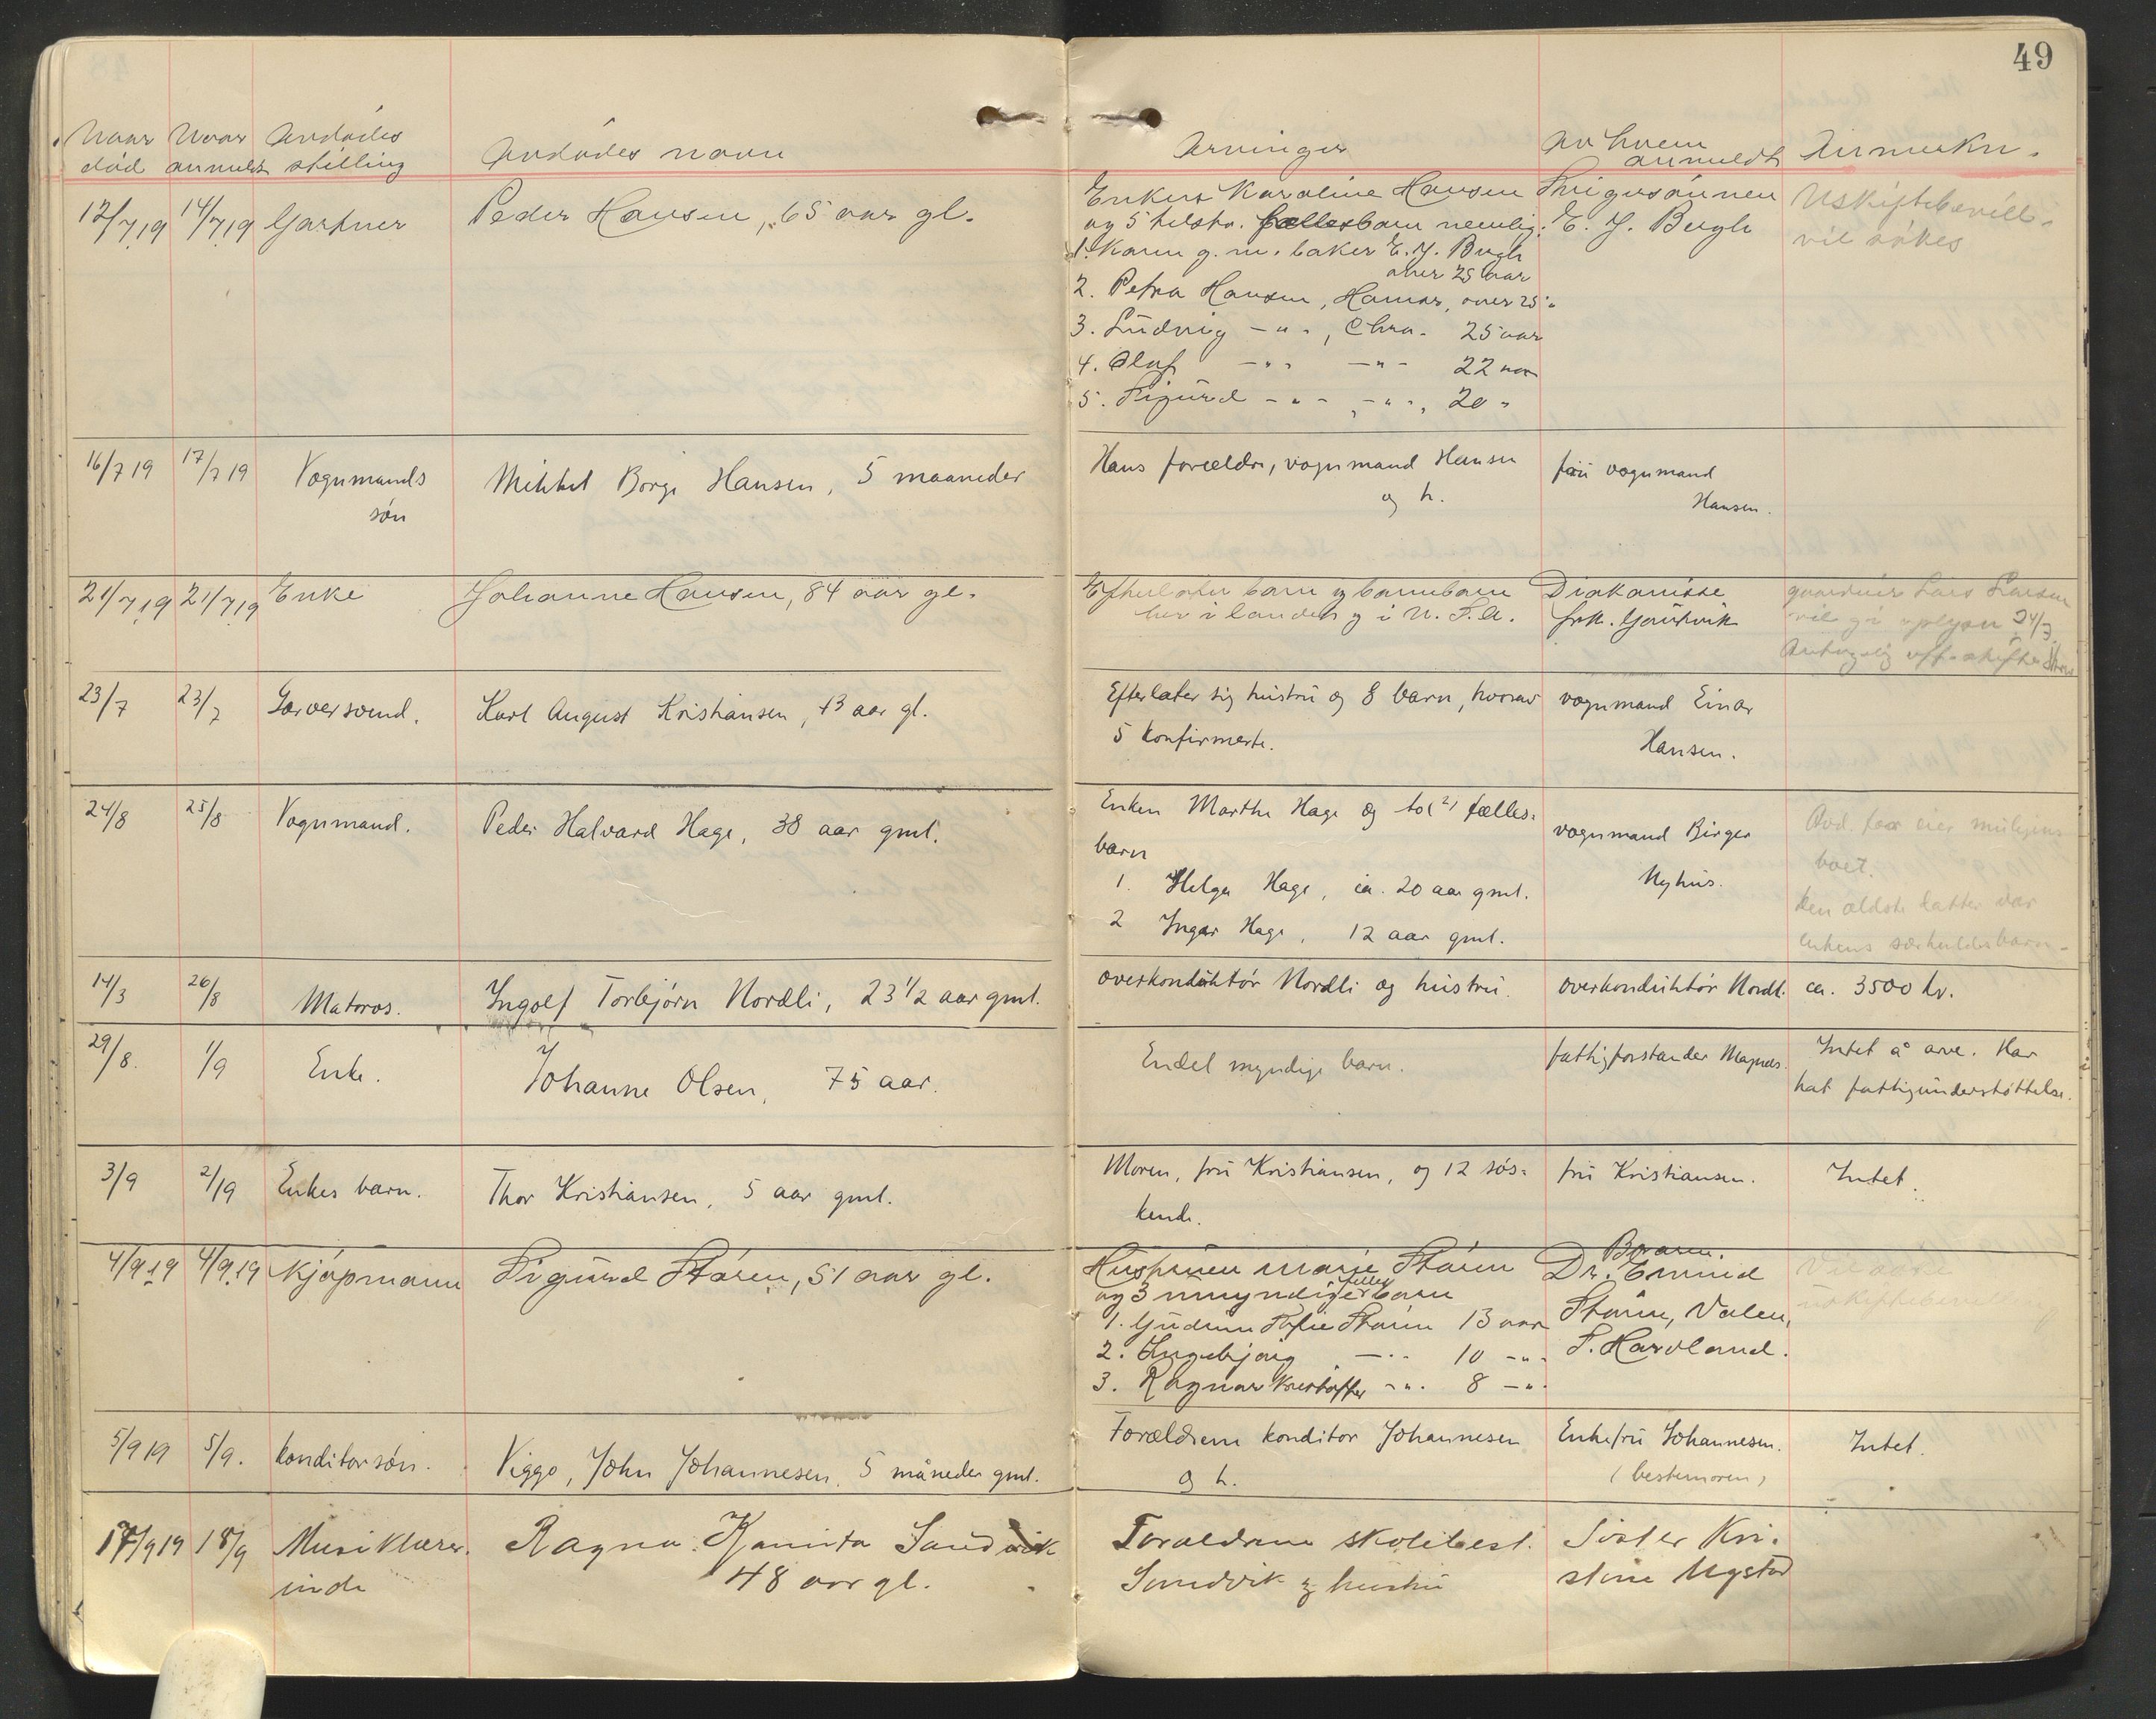 49
Naar død
Naar anmeldt
Avdødes stilling
Avdødes navn
Arvinger
Av hvem anmeldt
Anmerkn.
12/7 19 14/7 19 Gartner Peder Hansen, 65 aar gl.
Enken Karoline Hansen
og 5 tilsta. fællesbarn nemlig:
1. Karen g. m. baker E. J. Bugh
over 25 aar
2. Petra Hansen, Hamar, over 25 "
3. Ludvig -"-, Chra. 25 aar
4. Olaf -"- -"- 22 aar
5. Sigurd -"-, -"-, 20 "
Svigersønnen
E. J. Bugh
Uskiftebevill-
vil søkes
16/7 19 17/7 19 Vognmands
søn
Mikkel Borge Hansen, 5 maaneder
Hans forældre, vognmand Hansen
og h.
fru vognmand
Hansen.
21/7 19 21/7 19 Enke Johanne Hansen, 84 aar gl.
Efterlater barn og barnebarn
her i landet og i U. S. A.
Diakonisse
frk.
gaardeier Lars Larsen
vil gi oplysn 24/7.
Antagelig off. skifte
23/7 23/7 Garversvend. Karl August Kristiansen, 43 aar gl.
Efterlater sig hustru og 8 barn, hvorav
5 konfirmerte.
vognmand Einar
Hansen.
24/8 25/8 Vognmand. Peder Halvard Hage, 38 aar gml.
Enken Marthe Hage og to (2) fælles-
barn
1. Helga Hage, ca. 20 aar gml.
2 Ingar Hage, 12 aar gml.
vognmand Birger
Nyhus.
Avd. far eier muligens
boet.
den ældste datter var
enkens særkuldsbarn.
14/3 26/8 Matros. Ingolf Torbjørn Nordli, 23 1/2 aar gml.
overkonduktør Nordli og hustru.
overkonduktør Nordli.
ca. 3500 kr.
29/8. 1/9 Enke. Johanne Olsen, 75 aar.
Endel myndige barn.
fattigforstander Magnæs.
Intet å arve. Har
hat fattigunderstøttelse.
3/9 2/19 Enkes barn. Thor Kristiansen, 5 aar gml.
Moren, fru Kristiansen, og 12 søs-
kende.
fru Kristiansen.
Intet.
4/9 19 4/9 19 Kjøpmann Sigurd Støren, 51 aar gl.
Hustruen Marie Støren
og 3 umyndige fælles barn
1. Gudrun Sofie Støren 13 aar
2. Ingebjørg -"- 10 -"-
3. Ragnar Kristoffer -"- 8 -"-
Broren.
Dr. Emund
Støren, Valen,
S. Hordland.
Vil søke
uskiftebev.
5/9 19 5/9. konditorsøn. Viggo, John Johannesen, 5 måneder gml.
Forældrene konditor Johannesen
og h.
Enkefru Johannesen.
(bestemoren)
Intet.
17/9 19 18/9 Musiklærer-
inde
Ragna Kamita Sandvik
48 aar gl.
Foraldrene skolebest.
Sandvik og hustru
Søster Kri-
stine Nystad